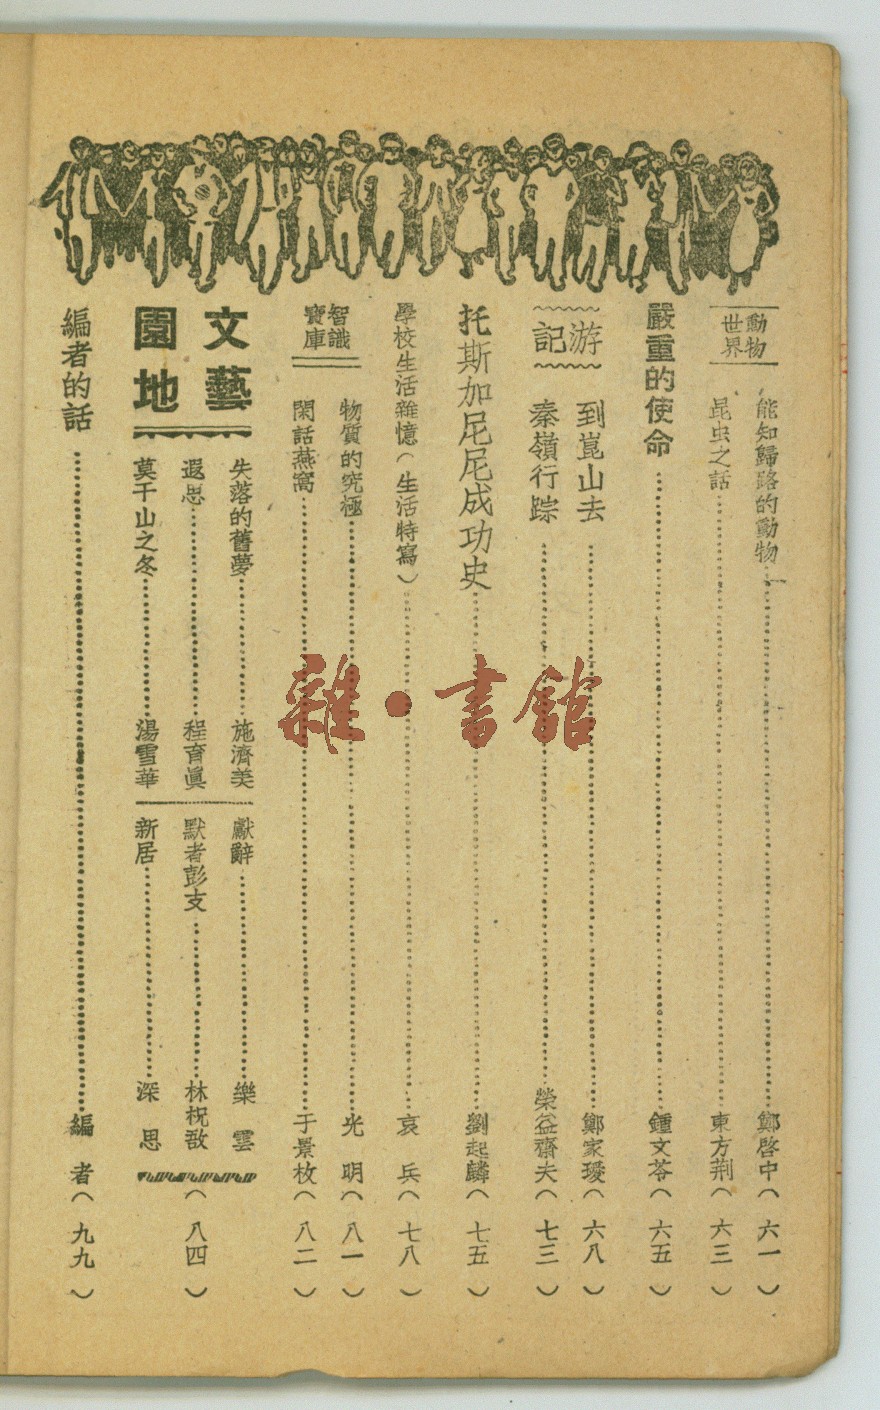 動物世界
能知歸路的動物 鄭啓中（六一）
昆虫之話 東方荆（六三）
嚴重的使命 鍾文苓（六五）
游記
到崑山去 鄭家璦（六八）
秦嶺行踪 榮益齋夫（七三）
托斯加尼尼成功史 劉起麟（七五）
學校生活雜憶（生活特寫） 哀兵（七八）
智識寶庫
物质的究極 光明（八一）
閑話燕窩 于景枚（八二）
文藝園地
失落的舊夢 施濟美
遐思 程育眞
莫干山之冬 湯雪華
獻辭 樂雲
默者彭支 林柷敔
新居 深思
（八四）
編者的話 編者（九九）
雜·書館